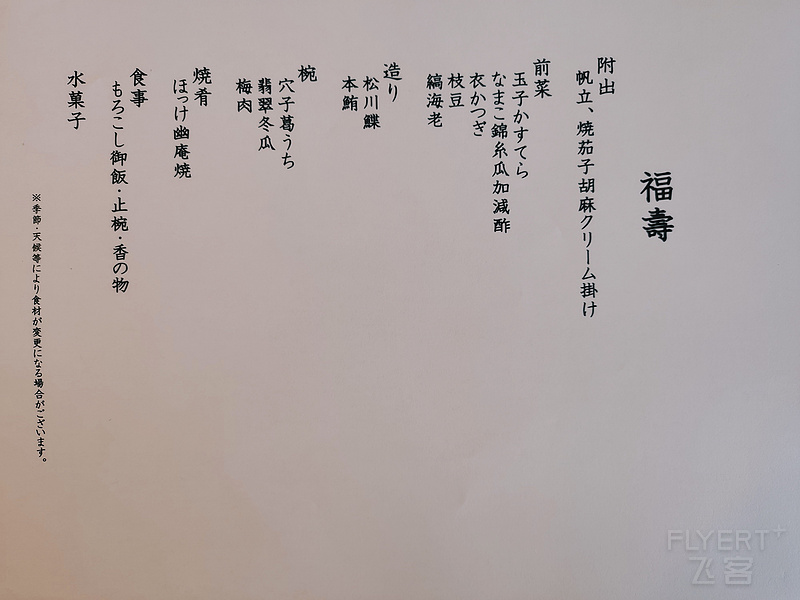 福壽
附出
帆立、焼茄子胡麻クリーム掛け
前菜
玉子かすてら
なまこ錦糸瓜加減酢
衣かつぎ
枝豆
縞海老
造り
松川鰈
本鮪
椀
穴子葛うち
翡翠冬瓜
梅肉
焼肴
ほっけ幽庵焼
食事
もろこし御飯・止椀・香の物
水菓子
※季節・天候等により食材が変更になる場合がございます。
FLYERT+
飞客